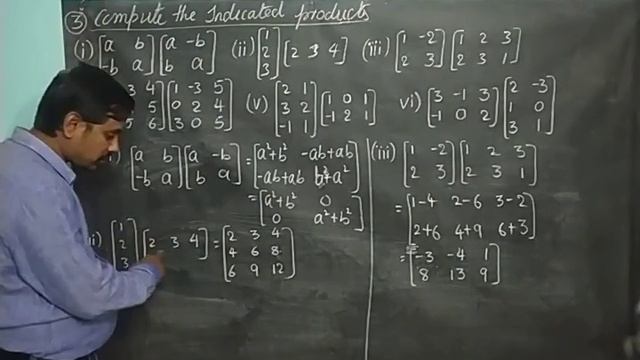 ③ Compute the Indicated products
(i) [a b -b a] [a -b b a] (ii) [1 2 3] [2 3 4] (iii) [1 -2 2 3] [1 2 3 2 3 1]
3 4 5 5 6] [1 -3 5 0 2 4 3 0 5] (v) [2 1 3 2 -1 1] [1 0 1 -1 2 1] vi) [3 -1 3 -1 0 2] [2 -3 1 0 3 1]
) [a b -b a] [a -b b a] = [a²+b² -ab+ab -ab+ab b²+a²]
= [a²+b² 0 0 a²+b²]
i) [1 2 3] [2 3 4] = [2 3 4 4 6 8 6 9 12]
(iii) [1 -2 2 3] [1 2 3 2 3 1]
= [1-4 2-6 3-2 2+6 4+9 6+3]
= [-3 -4 1 8 13 9]